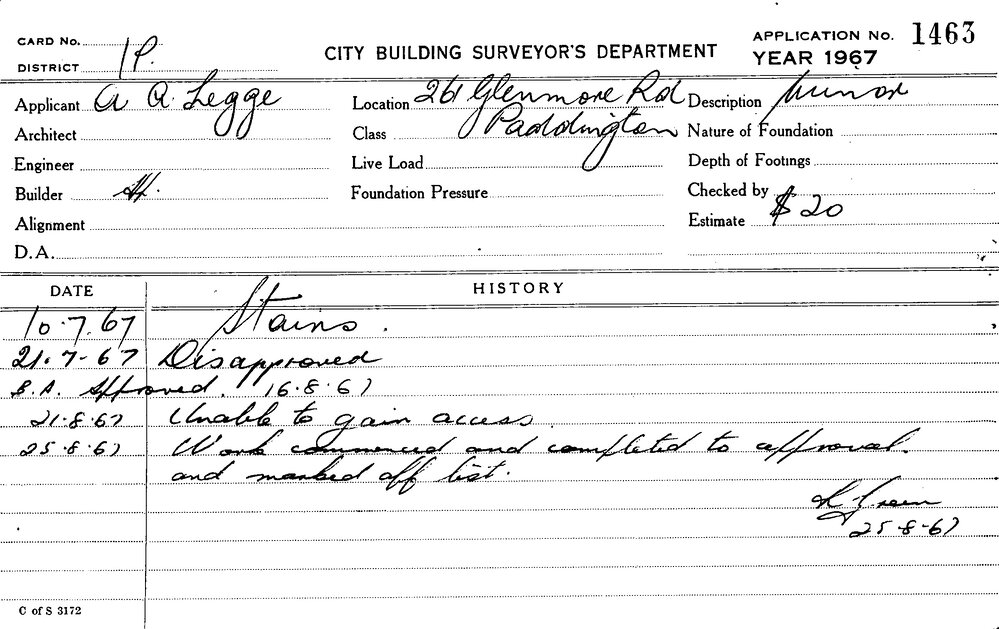 CARD No.
DISTRICT 1P.
CITY BUILDING SURVEYOR'S DEPARTMENT
APPLICATION No. 1463
YEAR 1967
Applicant A A Legge
Location 261 Glenmore Rd
Paddington
Description Minor
Architect
Class
Nature of Foundation
Engineer
Live Load
Depth of Footings
Builder
Foundation Pressure
Checked by
Alignment
Estimate $20
D.A.
DATE HISTORY
10.7.67 Stains.
21.7-67 Disapproved
B.A. Approved. 16.8.67
21.8.67 Unable to gain access.
25.8.67 Work commenced and completed to approval.
and marked off list.
Green
25.8.67
C of S 3172